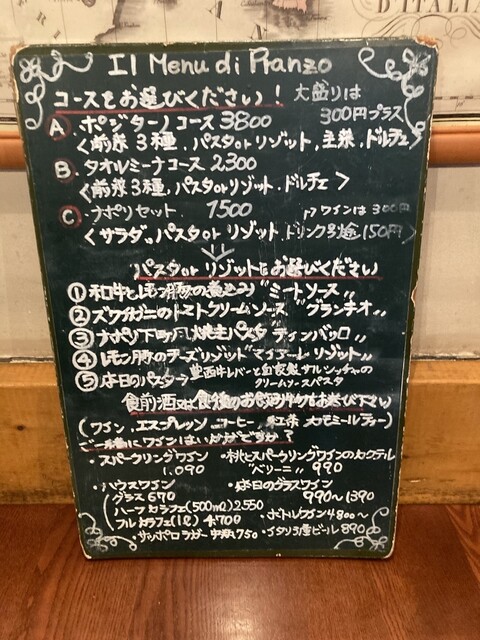 D'ITALIA
Il Menu di Pranzo
コースをお選びください！ 大盛りは 300円プラス
A ポジターノコース 3800
<前菜3種、パスタorリゾット、主菜、ドルチェ>
B. タオルミーナコース 2300
<前菜3種、パスタorリゾット、ドルチェ>
C ナポリセット 1500 ワインは300円
<サラダ。パスタorリゾット ドリンク別途150円>
パスタorリゾットはお選びください
① 和牛とレモン "ミートソース"
② ズワイガニのトマトクリームソース "グランチオ"
③ ナポリ下町風焼きパスタ ティンバッロ"
④ レモン風のチーズリゾット"マイオーレリゾット"
⑤ 本日のパスタ→ 黒西牛レバーと自家製サルシッチャの クリームソースパスタ
食前酒又は食後のお飲み物もお選び下さい
(ワイン、エスプレッソ コーヒー 紅茶 カモミールティー)
ご一緒にワインはいかがですか？
・スパークリングワイン 1,090
・桃とスパークリングワインのカクテル "ベリーニ" 990
・ハウスワイン
グラス 670
ハーフカラフェ(500ml) 2550
フルカラフェ(1ℓ) 4700
・本日のグラスワイン 990〜1390
・ボトルワイン 4800〜
・サッポロラガー 中瓶 750 ・イタリア産ビール 890